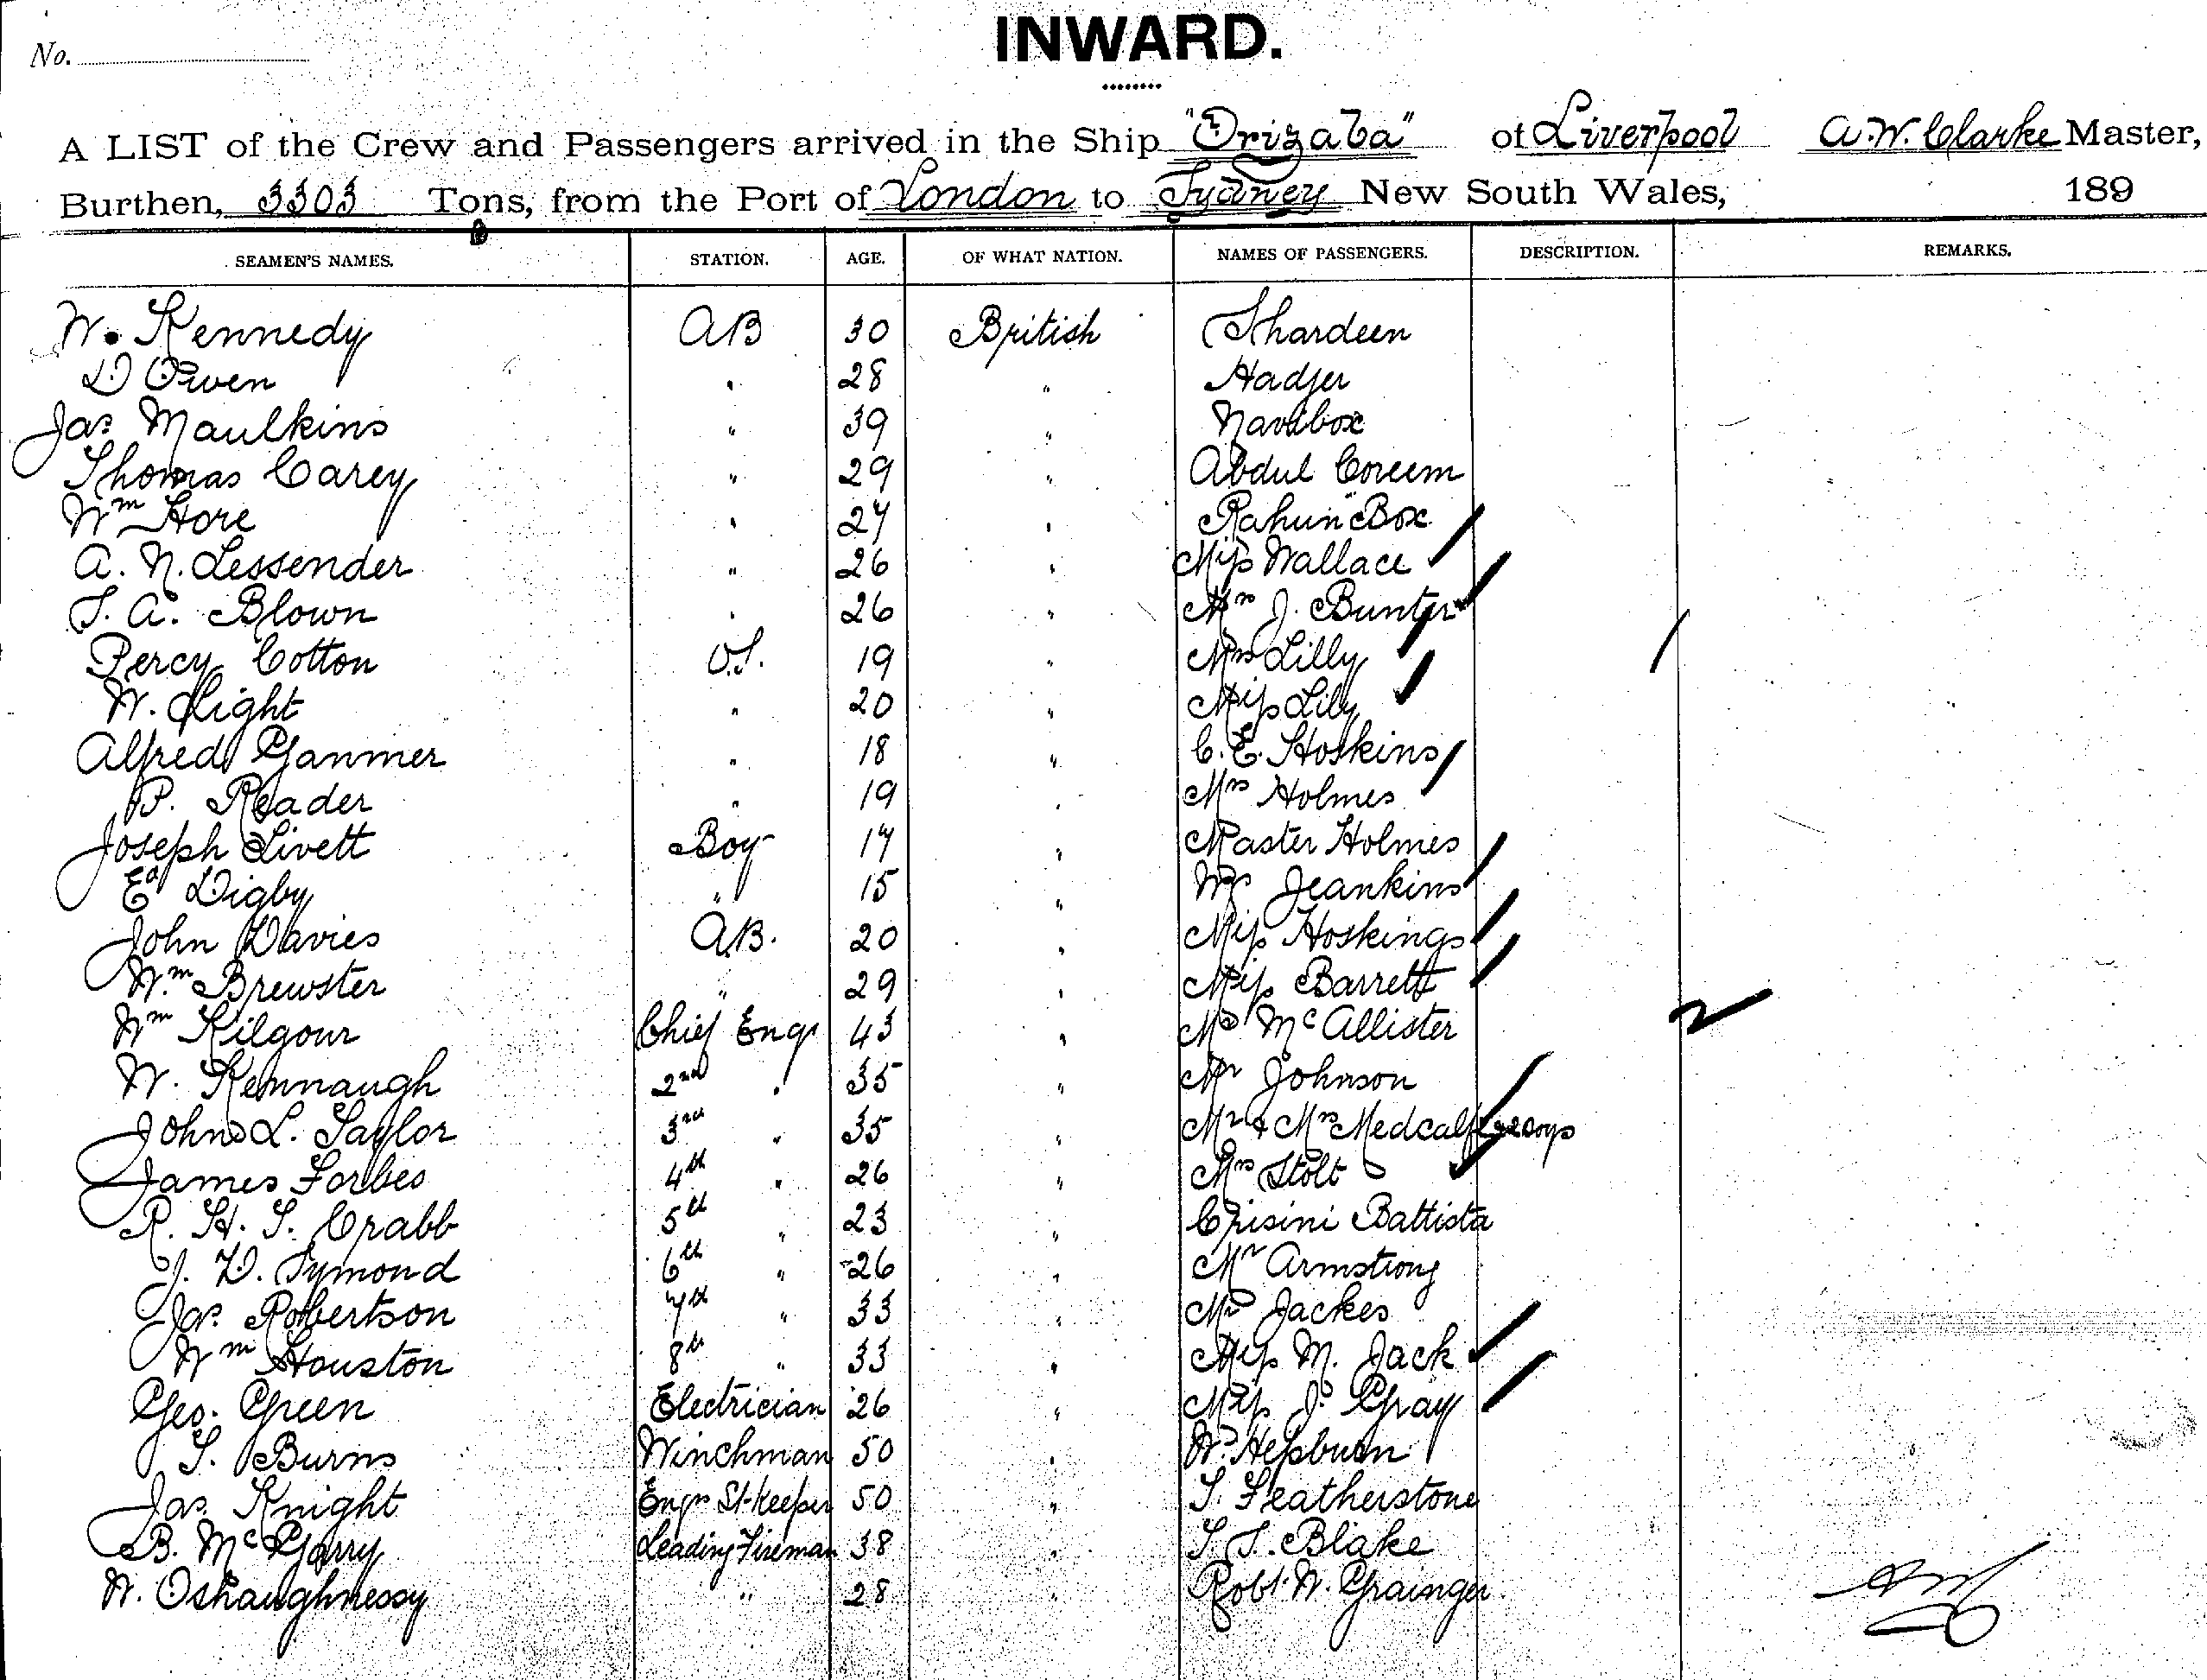 INWARD.
No.
A LIST of the Crew and Passengers arrived in the Ship "Orizaba" of Liverpool A.W. Clarke Master,
Burthen, 3303 Tons, from the Port of London to Sydney New South Wales, 189
SEAMEN'S NAMES. STATION. AGE. OF WHAT NATION. NAMES OF PASSENGERS. DESCRIPTION. REMARKS.
W. Kennedy AB 30 British Shardeen
D Owen " 28 " Hadjer
Jas. Maulkins " 39 " Navabox
Thomas Carey " 29 " Abdul Coreem
Wm Hore " 27 " Rahun Box
A. N. Lessender " 26 " Miss Wallace
T. A. Blown " 26 " Mrs J. Bunter
Percy Cotton O.S. 19 " Mrs Lilly
W. Light " 20 " Miss Lily
Alfred Ganmer " 18 " C. E. Hoskins
P. Reader " 19 " Mrs Holmes
Joseph Livett Boy 17 " Master Holmes
Ed Digby " 15 " Jeankins
John Davies AB. 20 " Miss Hoskings
Wm Brewster " 29 " Miss Barrett
Wm Kilgour Chief Engr 43 " McAllister
W. Kennaugh 2nd " 35 " Mr Johnson
John L. Taylor 3rd " 35 " Mr & Mrs Medcalf
James Forbes 4th " 26 " Mrs Stolt
R. H. T. Crabb 5th " 23 " Crisini Battista
J. D. Symond 6th " 26 " Mr Armstrong
Jas. Robertson 7th " 33 " Jackes
Wm Houston 8th " 33 " Miss M. Jack
Geo. Green Electrician 26 " Miss J. Gray
T. Burns Winchman 50 " Wm Hepburn
Jas. Knight Engrs St-keeper 50 " T. Featherstone
B. McGarry Leading Fireman 38 " T. T. Blake
W. Oshaughnessy " 28 " Robt. W. Grainger